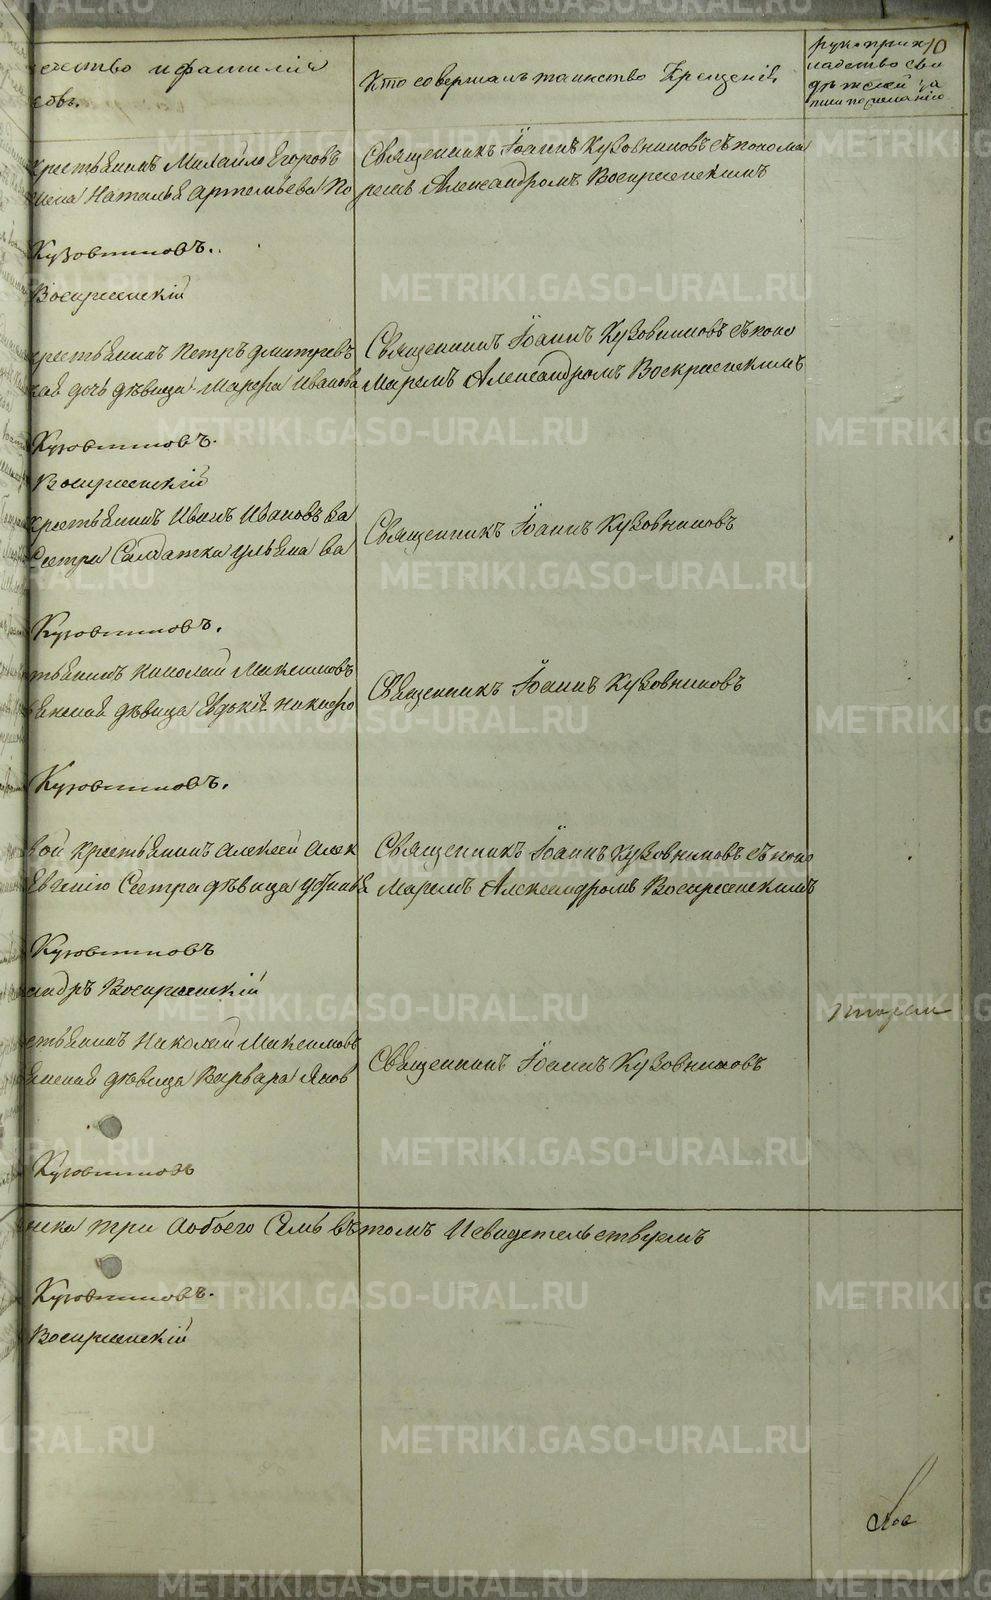 ество и фамилія
Кто совершалъ таинство Крещенія
рукоприк
10
ладство сви
дѣтелей за
писи по желанію
крестьянинъ Михайло Егоровъ
жена Наталья Артемьева По
Священникъ Іоаннъ Кузовниковъ съ понома
ремъ Александромъ Воскресенскимъ
Кузовниковъ.
Воскресенскій
крестьянинъ Петръ Дмитревъ
кая дочь дѣвица Марѳа Иванова
Священникъ Іоаннъ Кузовниковъ съ поно
маремъ Александромъ Воскресенскимъ
Кузовниковъ.
Воскресенскій
крестьянинъ Иванъ Ивановъ Ва
Сестра Солдатка Ульяна Ва
Священникъ Іоаннъ Кузовниковъ
Кузовниковъ.
тьянинъ Николай Максимовъ
янская дѣвица Никифо
Священникъ Іоаннъ Кузовниковъ
Кузовниковъ.
вой крестьянинъ Алексей Алек
Евгенію Сестра дѣвица
Священникъ Іоаннъ Кузовниковъ съ поно
маремъ Александромъ Воскресенскимъ
Кузовниковъ
сандръ Воскресенскій
стьянинъ Николай Максимовъ
янская дѣвица Варвара Яков
Священникъ Іоаннъ Кузовниковъ
Кузовниковъ
три Аобоего Семь въ томъ И свидетельствуемъ
Кузовниковъ.
Воскресенскій
METRIKI.GASO-URAL.RU